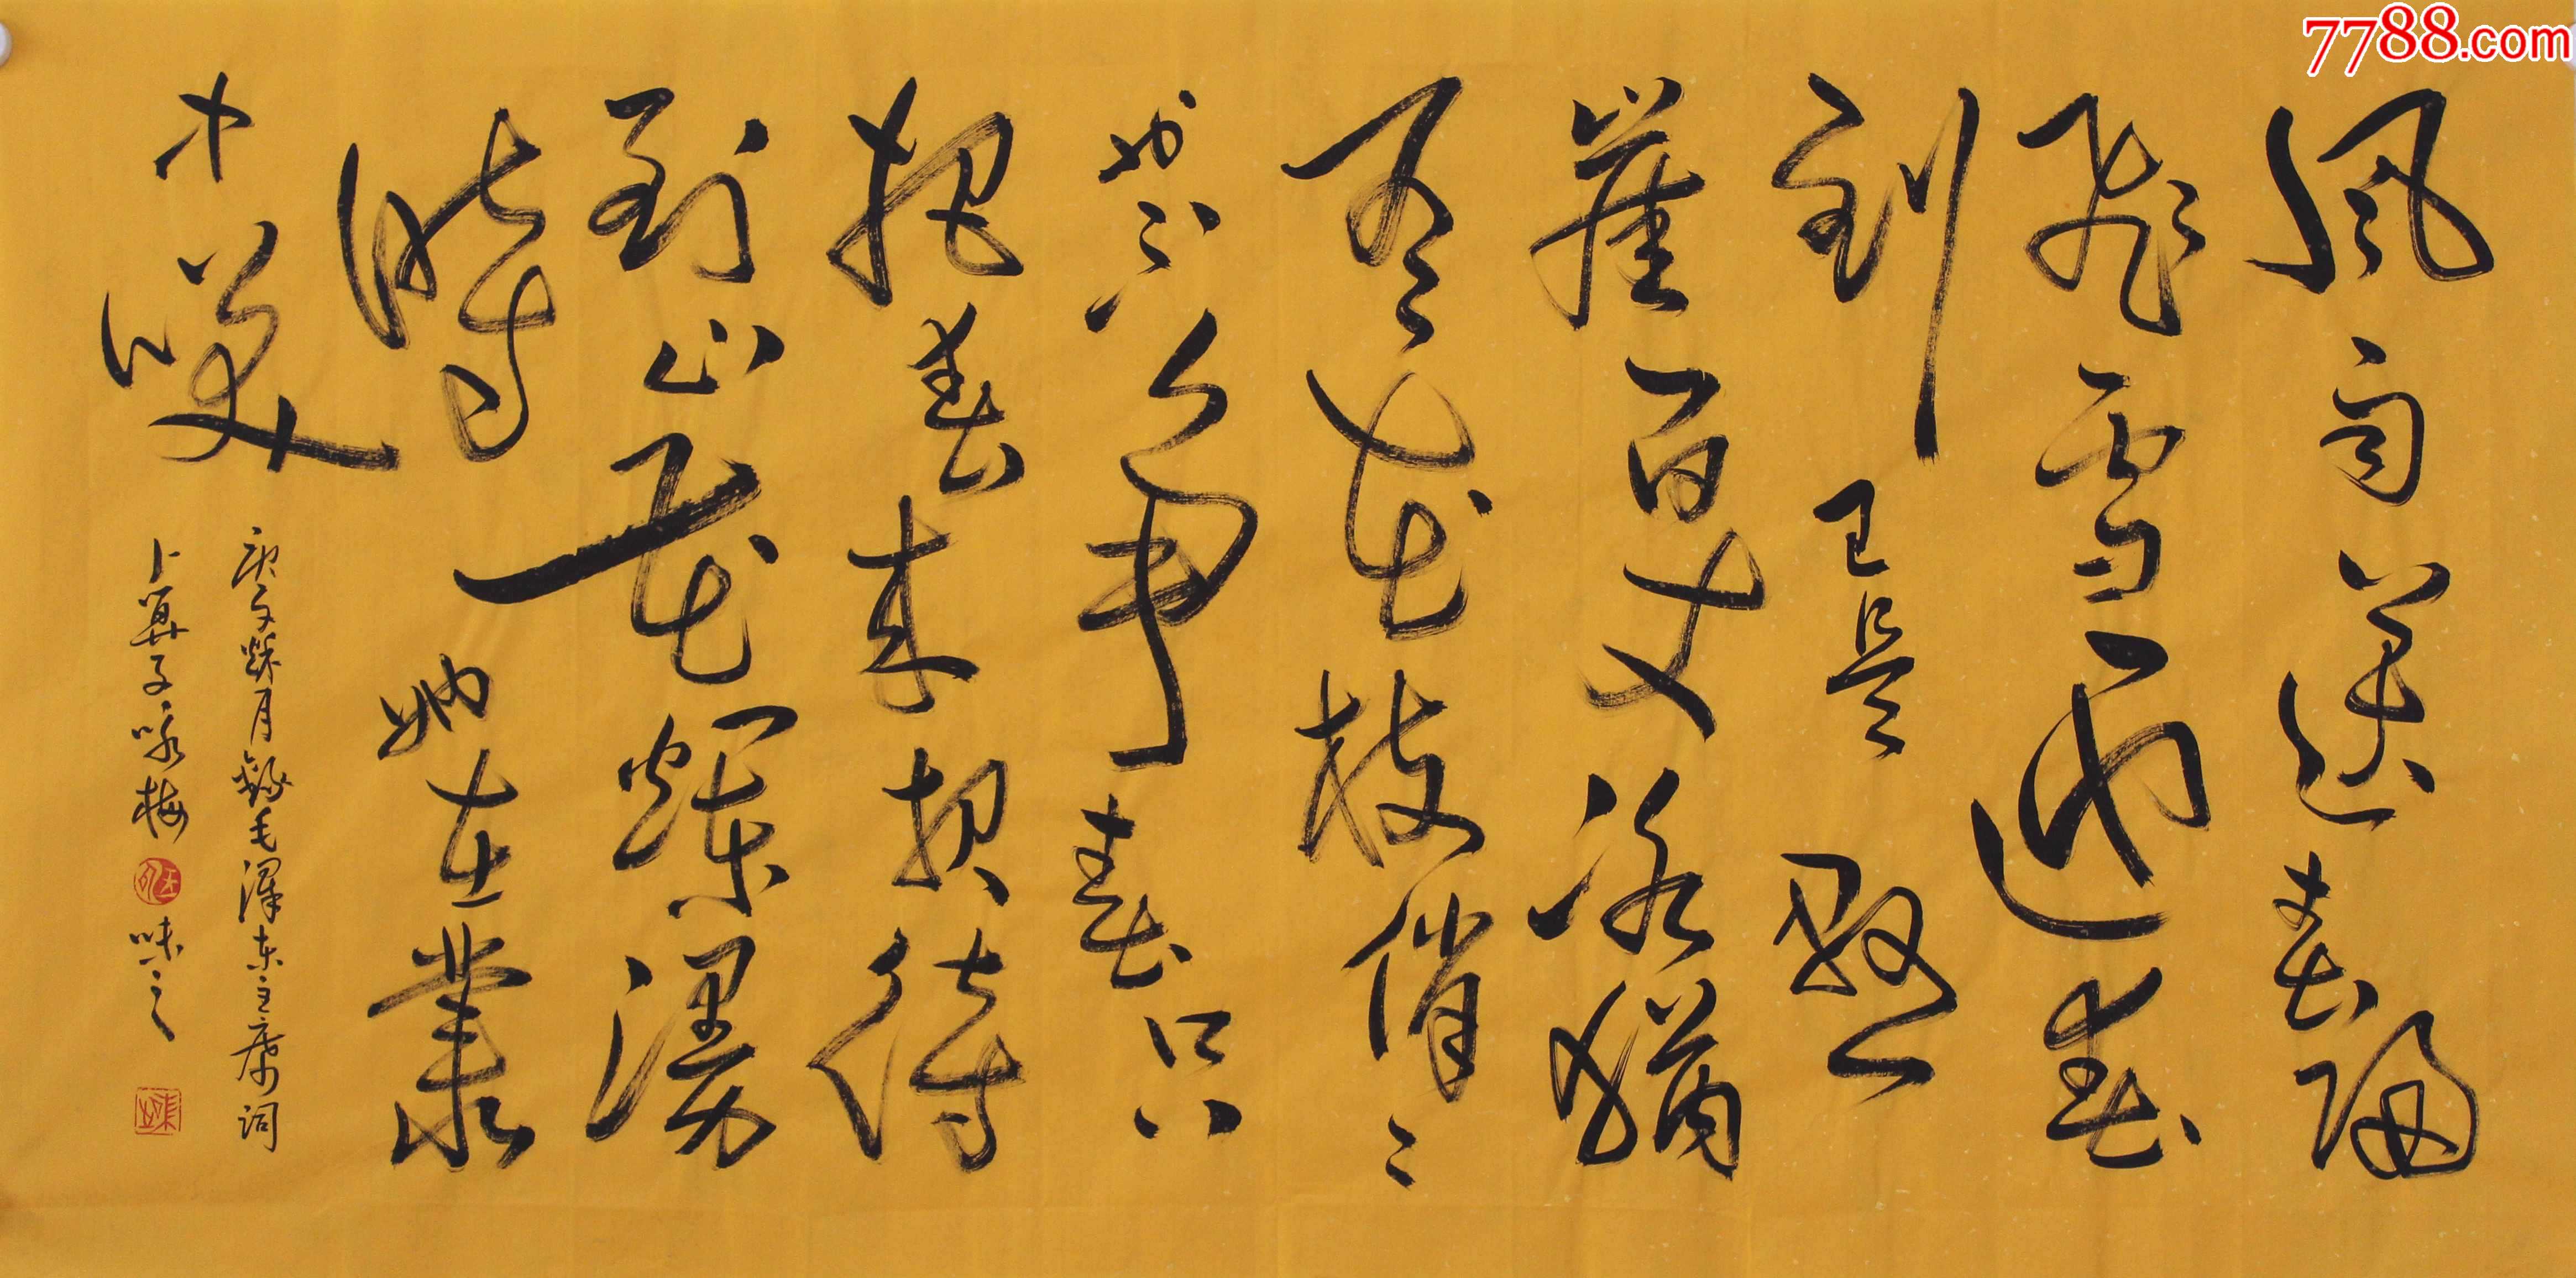 風雨送春歸
飛雪迎春
到已是懸
崖百丈冰猶
有花枝俏々
也不爭春只
把春来報待
到山花爛漫
時她在叢
中笑
庚子月錄毛澤东主席词
卜算子咏梅 味之
7788.com